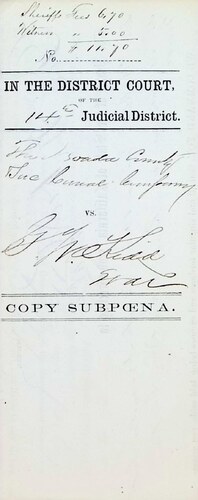 Sheriffs Fees 6.70
Witness " 5.00
$ 11.70
No.
IN THE DISTRICT COURT,
OF THE
14th Judicial District.
The Nevada County
Company
VS.
G. W. Kidd
COPY SUBPŒNA.